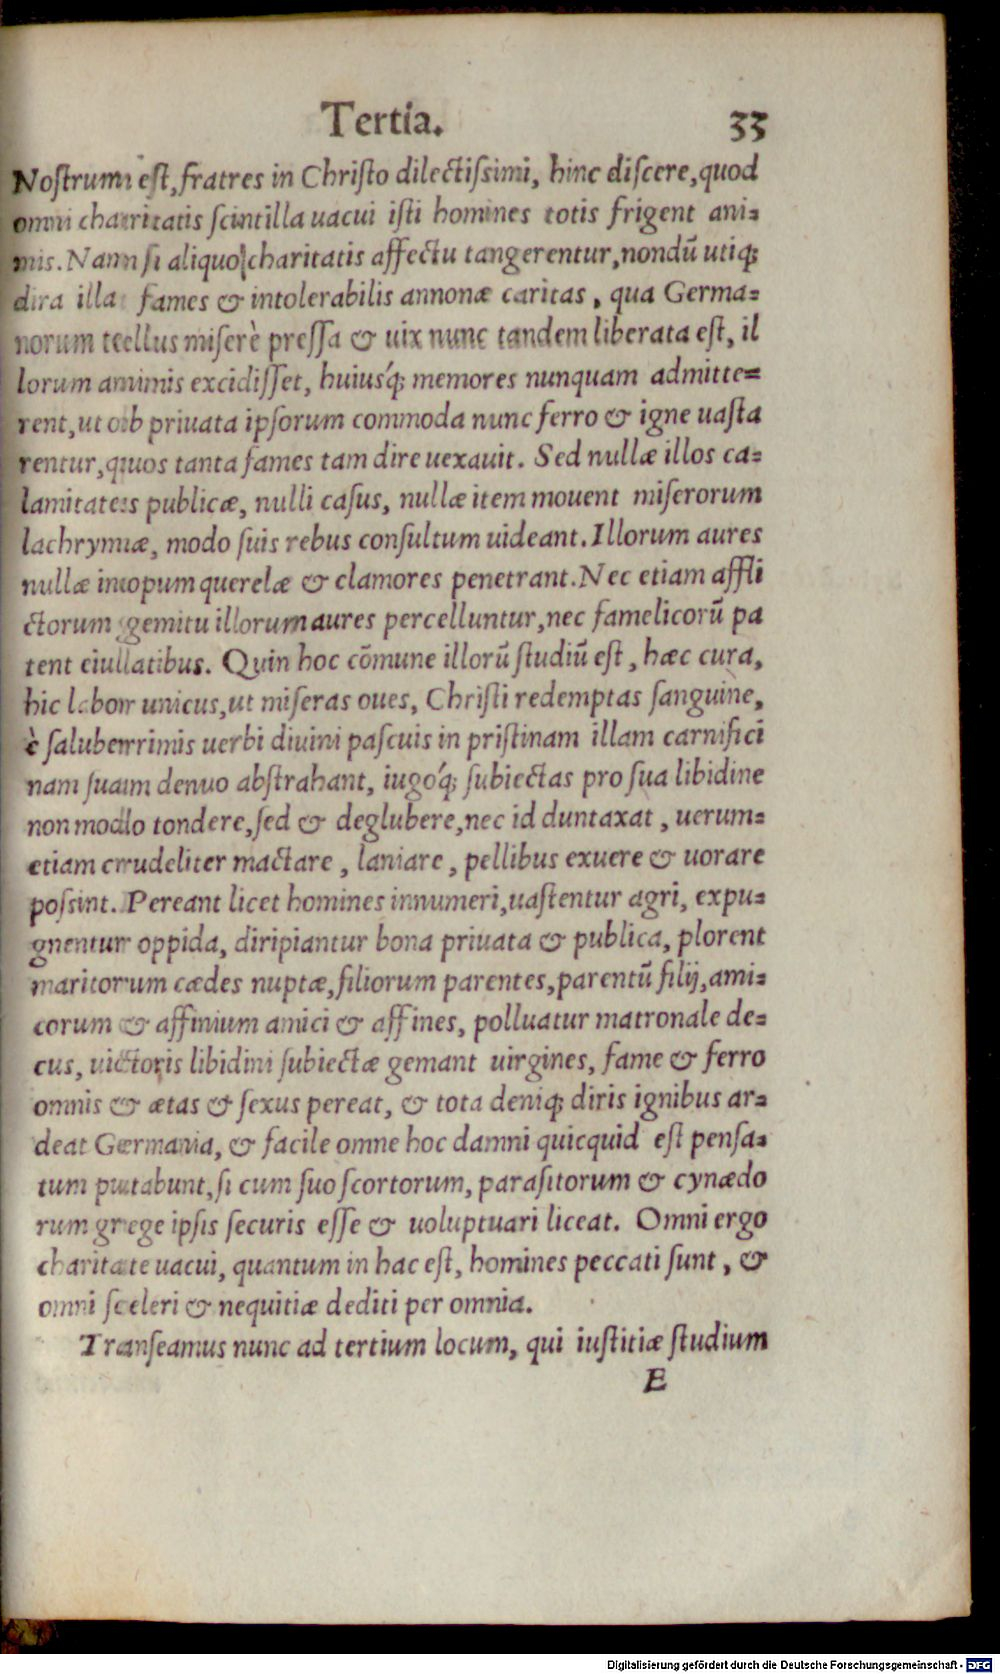 Tertia. 33
Nostrum est, fratres in Christo dilectissimi, hinc discere, quod
omni charitatis scintilla uacui isti homines totis frigent ani=
mis. Nam si aliquo charitatis affectu tangerentur, nondū utiq;
dira illa fames & intolerabilis annonæ caritas, qua Germa=
norum tellus miserè pressa & uix nunc tandem liberata est, il
lorum animis excidisset, huiusq́; memores nunquam admitte=
rent, ut ob priuata ipsorum commoda nunc ferro & igne uasta
rentur, quos tanta fames tam dire uexauit. Sed nullæ illos ca=
lamitates publicæ, nulli casus, nullæ item mouent miserorum
lachrymæ, modo suis rebus consultum uideant. Illorum aures
nullæ inopum querelæ & clamores penetrant. Nec etiam affli
ctorum gemitu illorum aures percelluntur, nec famelicorū pa
tent eiullatibus. Quin hoc cōmune illorū studiū est, hæc cura,
hic labor unicus, ut miseras oues, Christi redemptas sanguine,
è saluberrimis uerbi diuini pascuis in pristinam illam carnifici
nam suam denuo abstrahant, iugoq́; subiectas pro sua libidine
non modo tondere, sed & deglubere, nec id duntaxat, uerum=
etiam crudeliter mactare, laniare, pellibus exuere & uorare
possint. Pereant licet homines innumeri, uastentur agri, expu=
gnentur oppida, diripiantur bona priuata & publica, plorent
maritorum cædes nuptæ, filiorum parentes, parentū filij, ami=
corum & affinium amici & affines, polluatur matronale de=
cus, uictoris libidini subiectæ gemant uirgines, fame & ferro
omnis & ætas & sexus pereat, & tota deniq; diris ignibus ar=
deat Germania, & facile omne hoc damni quicquid est pensa=
tum putabunt, si cum suo scortorum, parasitorum & cynædo
rum grege ipsis securis esse & uoluptuari liceat. Omni ergo
charitate uacui, quantum in hac est, homines peccati sunt, &
omni sceleri & nequitiæ dediti per omnia.
Transeamus nunc ad tertium locum, qui iustitiæ studium
E
Digitalisierung gefördert durch die Deutsche Forschungsgemeinschaft - DFG